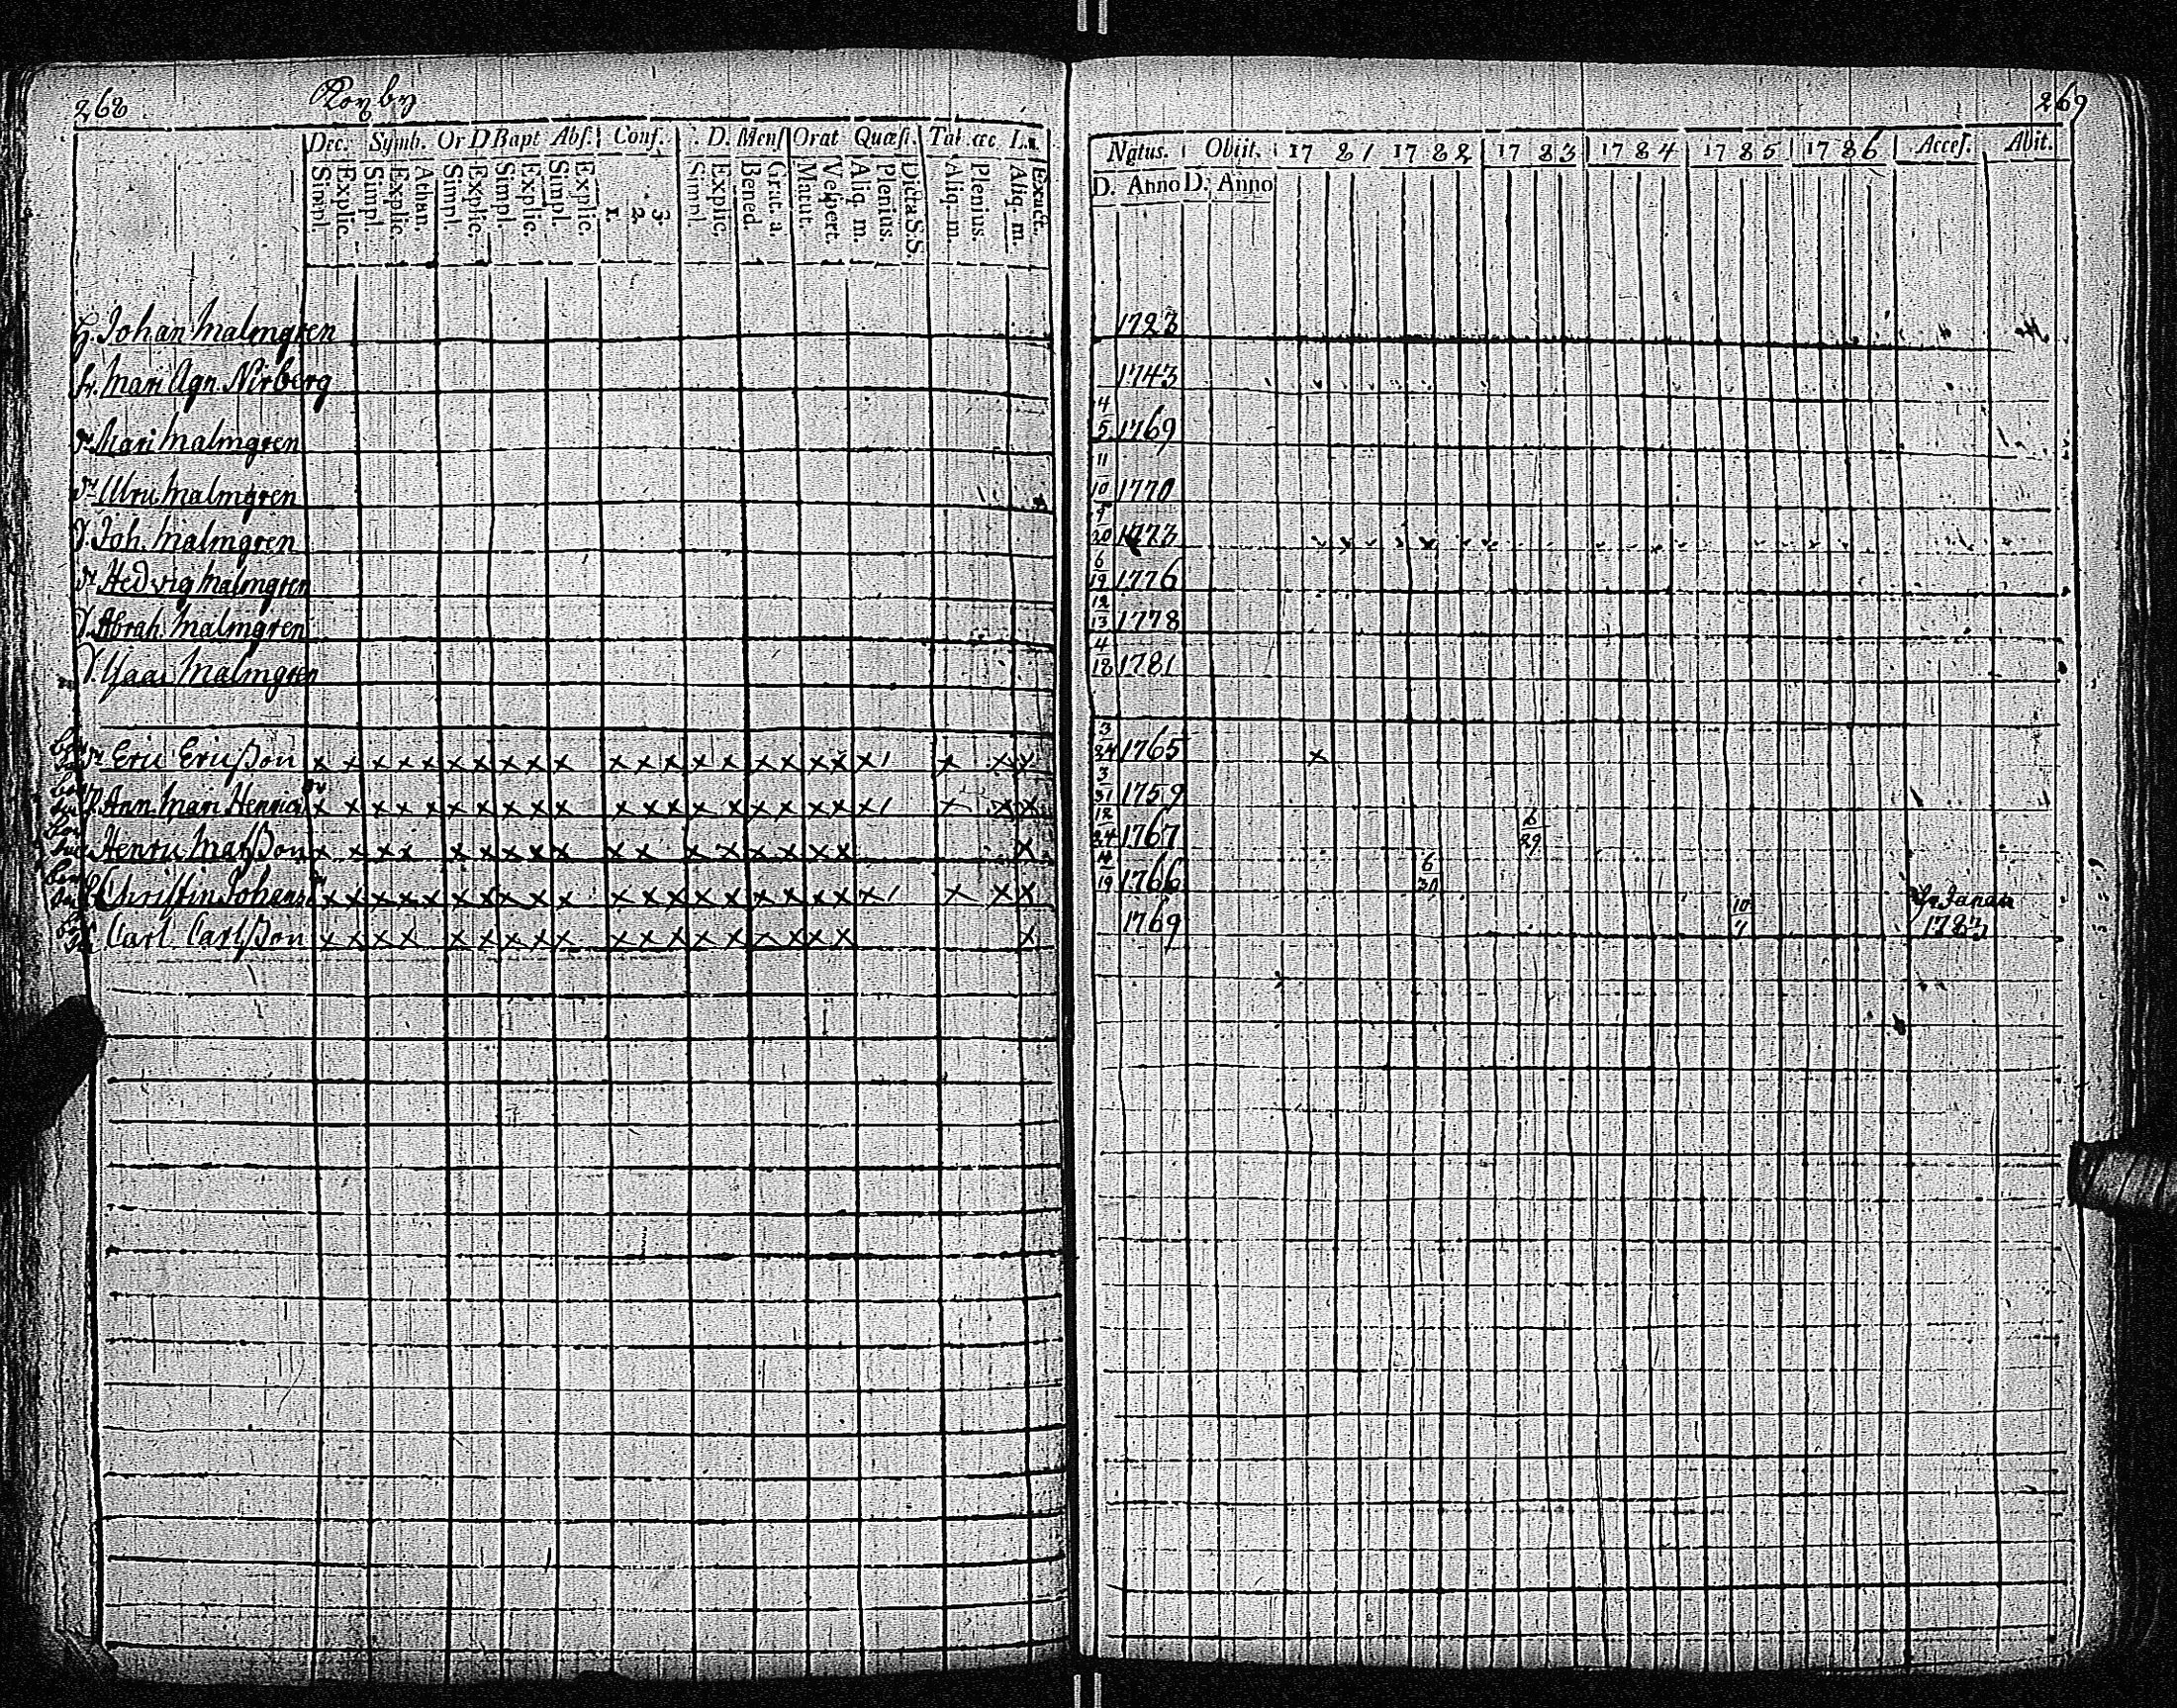 268
Dec. Symb. Or D Bapt Abs. Conf. D. Mens Orat Quæst. Tab. œc Ln.
Simpl. Explic. Simpl. Explic. Athan. Simpl. Explic. Simpl. Explic. Simpl. Explic. 1. 2. 3. Simpl. Explic. Bened. Grat. a. Matut. Vespert. Aliq. m. Plenius. Dicta S.S. Aliq. m. Plenius. Aliq. m. Exact.
H. Johan Malmgren
fr. Mari Agn. Nirberg
dr Mari Malmgren
dr Ulric Malmgren
S. Joh. Malmgren
dr Hedvig Malmgren
S. Abrah. Malmgren
S. Malmgren
Eric Ericßon x x x x x x x x x x x x x x x x x x x x 1 x x x
P. Ann Mari Henrics dr x x x x x x x x x x x x x x x x x x x x 1 x x x
Henric Matßon x x x x x x x x x x x x x x x x x x
P. Christin Johans dr x x x x x x x x x x x x x x x x x x x x 1 x x x
Carl Carlßon x x x x x x x x x x x x x x x x x x x
269
Natus. Obiit. 1781 1782 1783 1784 1785 1786 Acces. Abit.
D. Anno D. Anno
1723
1743
4/5 1769
11/10 1770
9/20 1773
6/19 1776
12/13 1778
4/18 1781
3/24 1765 x
3/31 1759
12/24 1767 6/29
19 1766 6/30
1769 10/7
1783